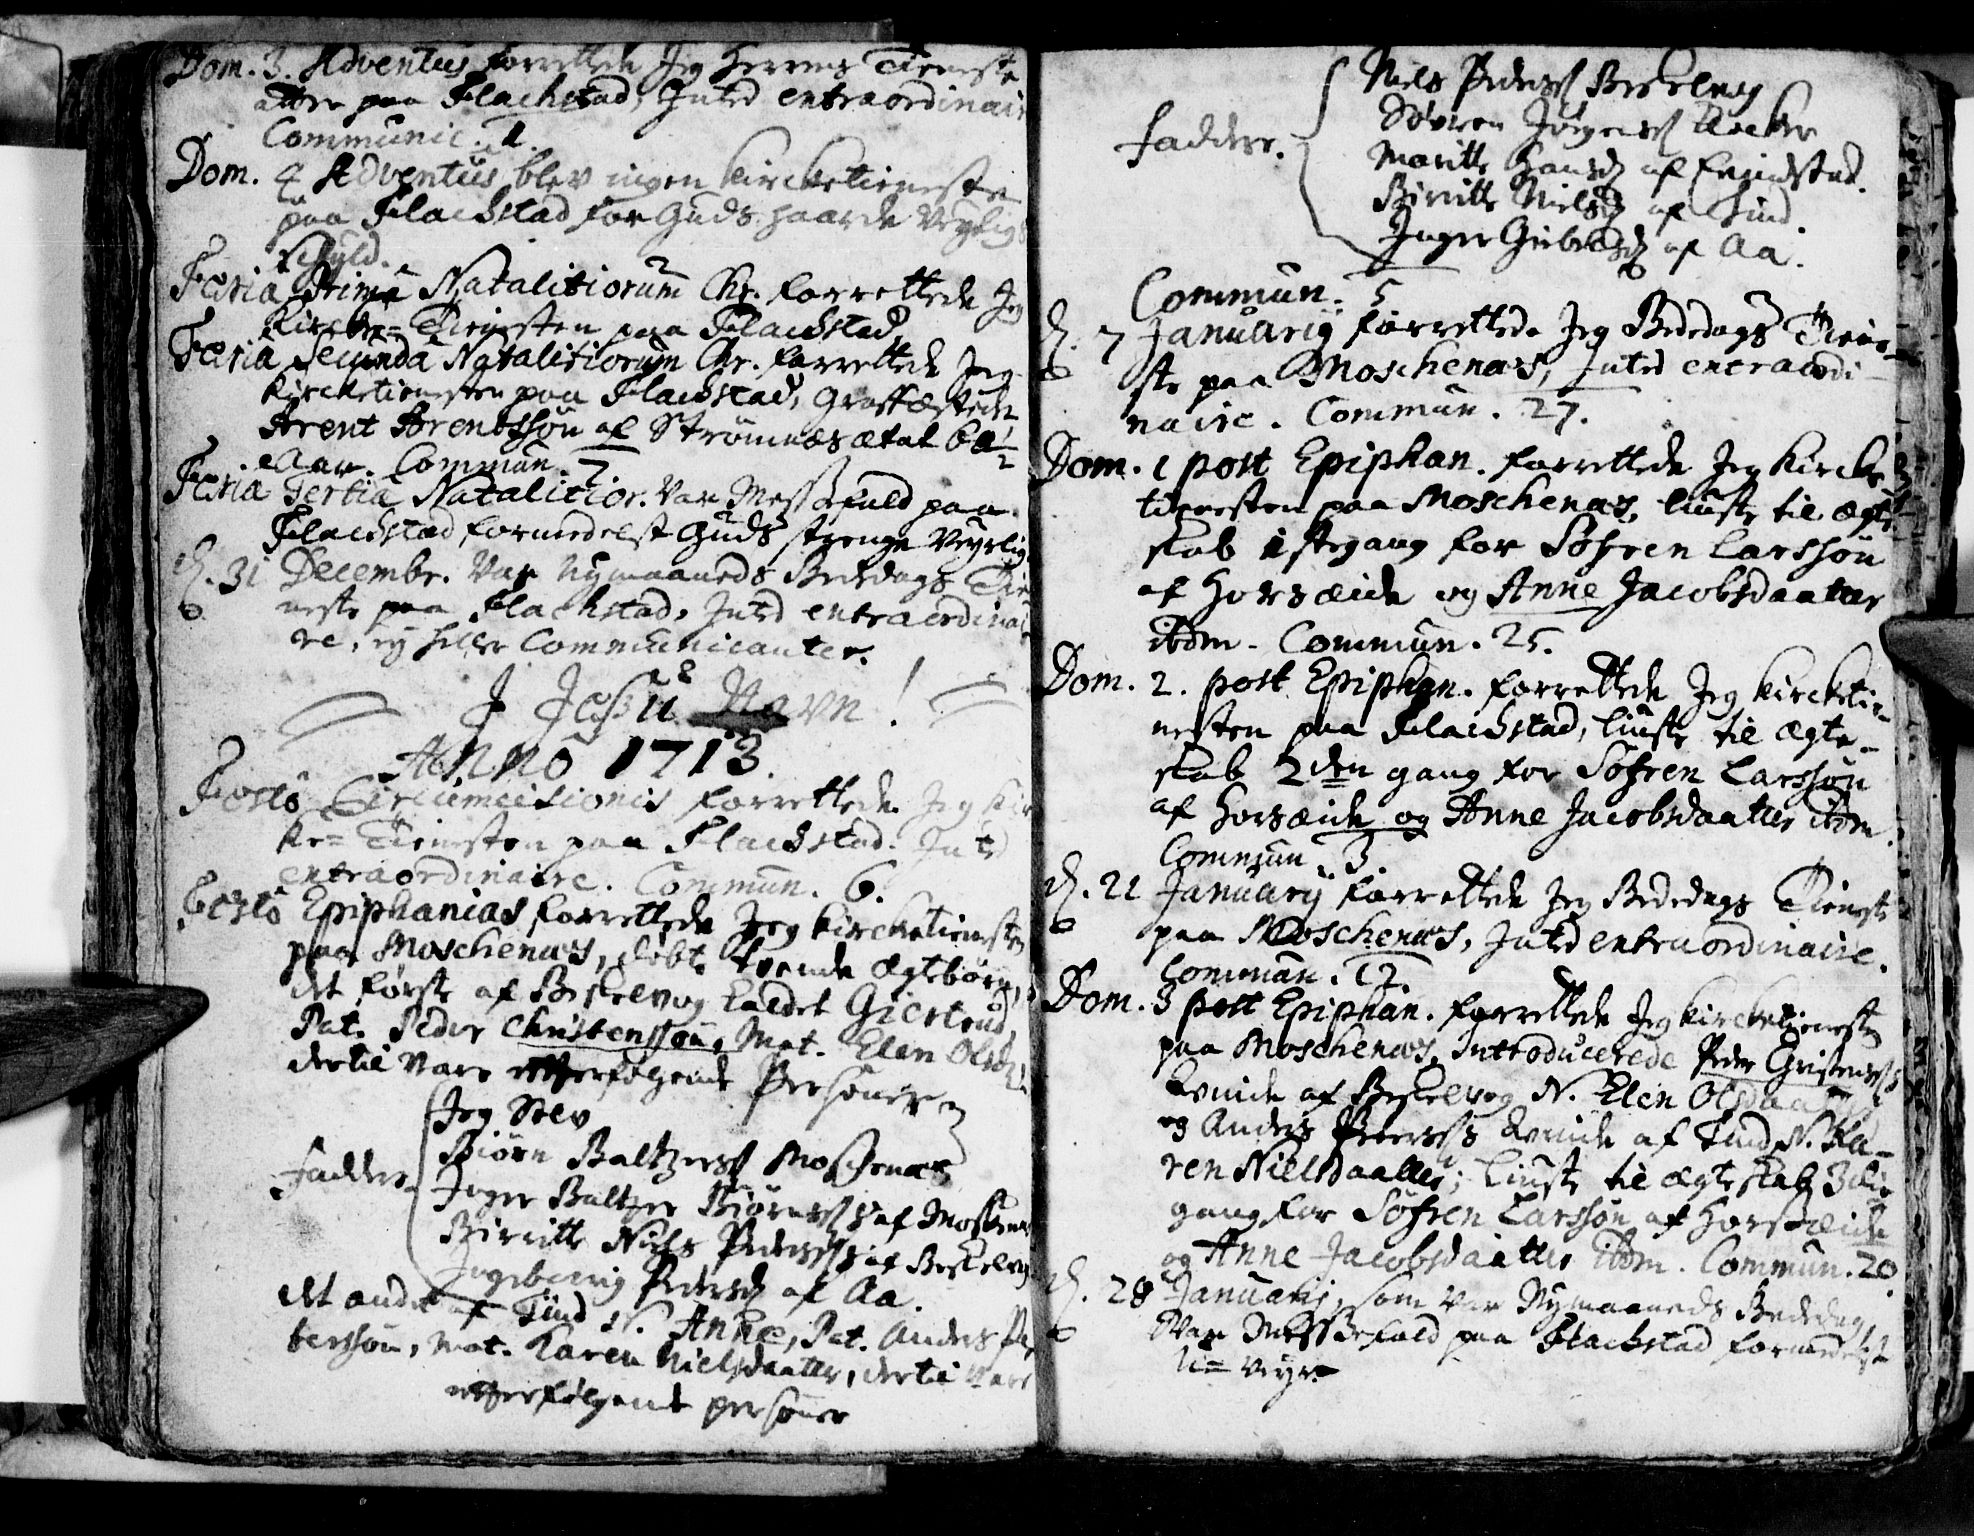 Dom. 3. Adventus forrettede Jeg Herrens Tieneste
atter paa Flachstad, Inted extraordinair
Communic. 1.
Dom. 4 Adventus blev ingen Kircketieneste
paa Flachstad for Guds haarde Veyrligs
schyld.
Feria Prima Natalitiorum Chr. forrettede Jeg
Kircke=Tienesten paa Flachstad
Feria Secunda Natalitiorum Chr. forrettede Jeg
Kircketienesten paa Flachstad, Graffæstede
Arent Arentssøn af Strømnæs ætat
Aar. Commun. 7
Feria Tertia Natalitior. Var Messefald paa
Flachstad formedelst Guds strenge Veyrlig
d. 31 Decembr. Var Nymaaneds Bededags Tie
neste paa Flachstad, Inted extraordinai
re, ey heller Communicanter.
J Jesu Navn!
Anno 1713.
Festo Circumcisionis forrettede Jeg Kir
ke=Tienesten paa Flachstad. Inted
extraordinaire. Commun. 6.
Festo Epiphanias forrettede Jeg Kircketienesten
paa Moschenæs, døbte tvende Ægtebørn,
det første af Beskelvog kaldet Giertrud,
Pat. Peder Christenssøn, Mat. Elen Olsd.
dertil vare efterfølgende Personer
Jeg Selv
Biørn Baltzerss Moschenæs
Faddere
Inger Baltzer Biørnss af Moskenæs
Birritte Niels Pederss af Beskelvog
Ingeborrig Pedersd af Aa.
det andet af Tind N. Anne, Pat. Anders Pe
terssøn, Mat. Karen Nielsdaatter, dertil vare
efterfølgende personer
Niels Pederss Beskelvog
Søvren Jørgenss
Faddere.
Maritte Hansd af
Birritte Nielsd af Tind.
Inger af Aa.
Commun. 5
d. 7 Januarij forrettede Jeg Bededags Tiene-
ste paa Moschenæs, Inted extraordi-
naire. Commun. 27.
Dom. 1 post Epiphan. forrettede Jeg Kircke-
tienesten paa Moschenæs, liuste til Ægte
skab 1ste gang for Søfren Larssøn
af Horsæide og Anne Jacobsdaatter
ibdm. Commun. 25.
Dom. 2. post Epiphan. forrettede Jeg Kircketie-
nesten paa Flachstad, liuste til Ægte-
skab 2den gang for Søfren Larssøn
af Horsæide og Anne Jacobsdaatter ibdm.
Commun. 3.
d. 21 Januarij forrettede Jeg Bededags Tieneste
paa Moschenæs, Inted extraordinaire.
Commun. 12.
Dom. 3 post Epiphan. forrettede Jeg Kircketieneste
paa Moschenæs, Introducerede Peder Christenss
Kvinde af Beskelvog N. Elen Olsdaatter
og Anders Peterss Kvinde af Tind N. Ka-
ren Nielsdaatter; liuste til Ægteskab 3die
gang for Søfren Larssøn af Horsæide
og Anne Jacobsdaatter ibdm. Commun. 20
d. 28 Januarij, som var Nymaaneds Bededag
Var Messefald paa Flachstad formedelst
U=veyr.